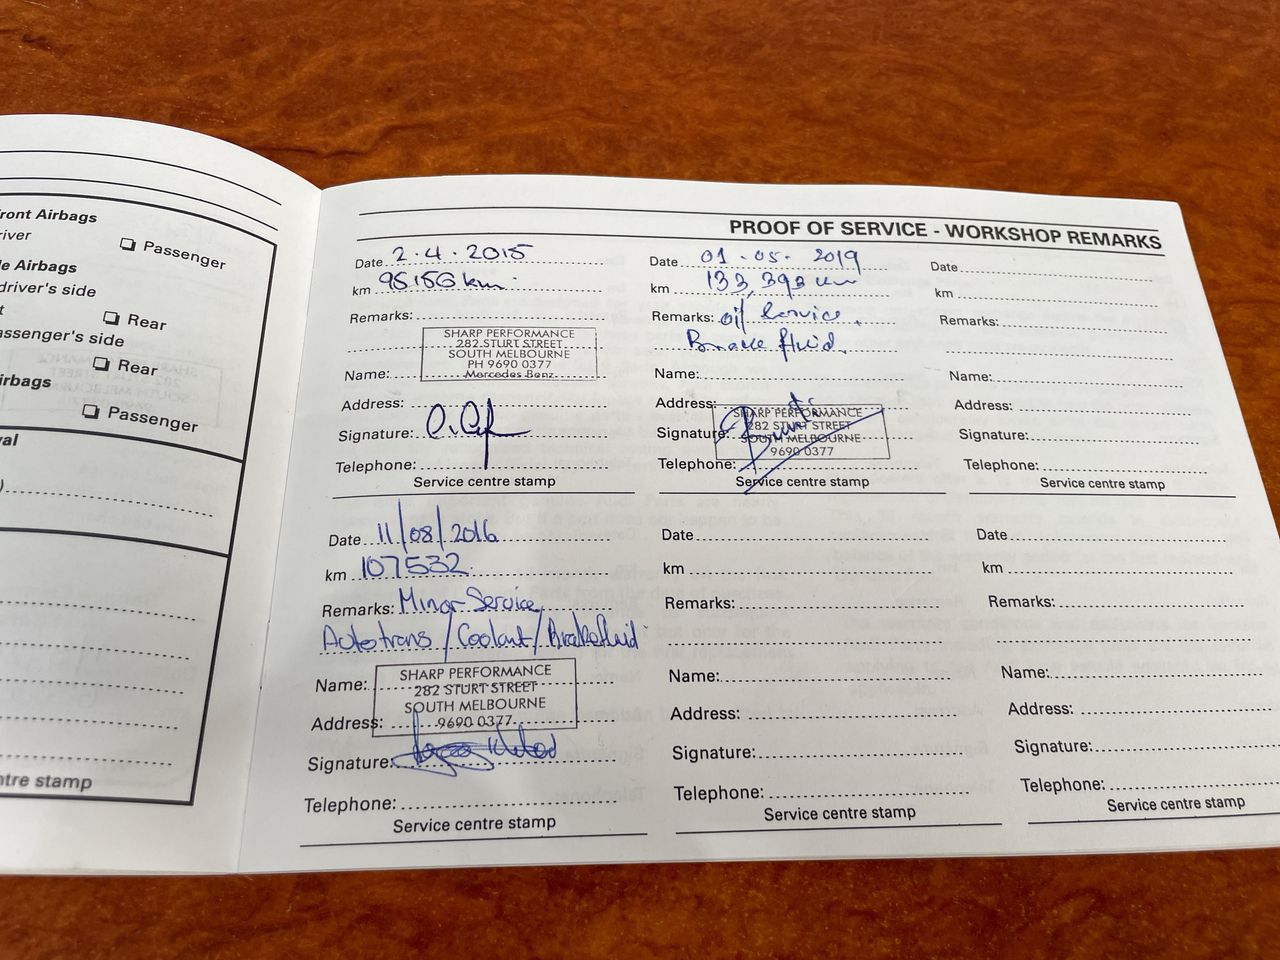 ront Airbags
river
Passenger
e Airbags
driver's side
t
Rear
assenger's side
Rear
irbags
Passenger
val
)
ntre stamp
PROOF OF SERVICE - WORKSHOP REMARKS
Date 2.4.2015
km 95156 km
Remarks:
SHARP PERFORMANCE
282 STURT STREET
SOUTH MELBOURNE
PH 9690 0377
Mercedes Benz
Name:
Address:
Signature:
Telephone:
Service centre stamp
Date 11/08/2016
km 107532
Remarks: Minor Service
Autotrans/Coolant/Brakefluid
SHARP PERFORMANCE
282 STURT STREET
SOUTH MELBOURNE
9690 0377
Name:
Address:
Signature:
Telephone:
Service centre stamp
Date 01.05.2019
km 133,393 km
Remarks: oil Service.
Brake fluid.
Name:
Address:
SHARP PERFORMANCE
282 STURT STREET
SOUTH MELBOURNE
9690 0377
Signature:
Telephone:
Service centre stamp
Date
km
Remarks:
Name:
Address:
Signature:
Telephone:
Service centre stamp
Date
km
Remarks:
Name:
Address:
Signature:
Telephone:
Service centre stamp
Date
km
Remarks:
Name:
Address:
Signature:
Telephone:
Service centre stamp